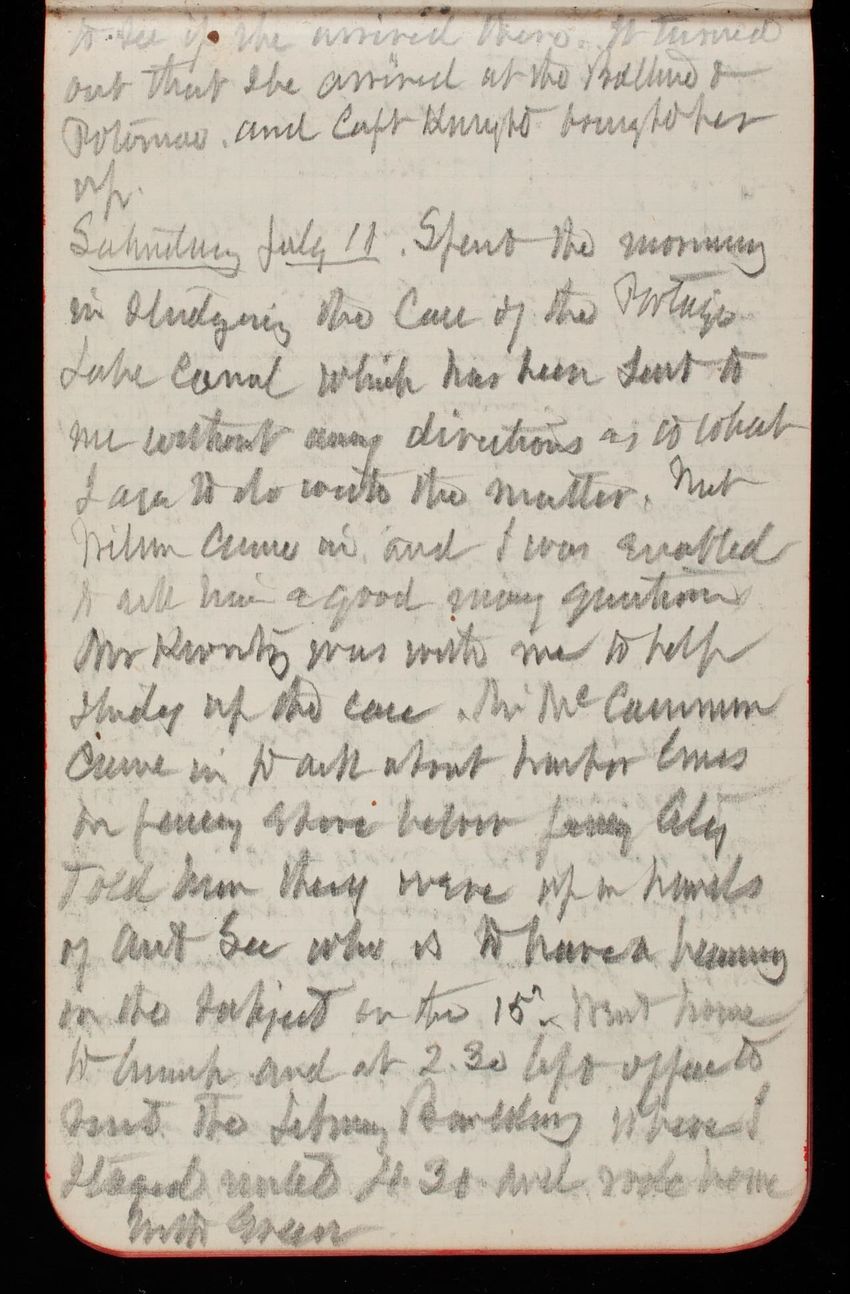 to see if she arrived there. It turned
out that she arrived at the Baltimo &
Potomac. and Capt Knight brought her
up.
Saturday July 11. Spent the morning
in studying the Case of the Portage
Lake Canal which has been sent to
me without any directions as to what
I am to do with the matter. Nat
Wilson Came in and I was enabled
to ask him a good many questions
Mr was with me to help
study up the case. Mr McCammon
Came in to ask about harbor lines
on Jersey shore below Jersey City
Told him they were up in hands
of Asst Sec who is to have a hearing
on the subject on the 15". Went home
to lunch and at 2.30 left office to
visit the Library Building where I
stayed until 4.30 and rode home
with Green